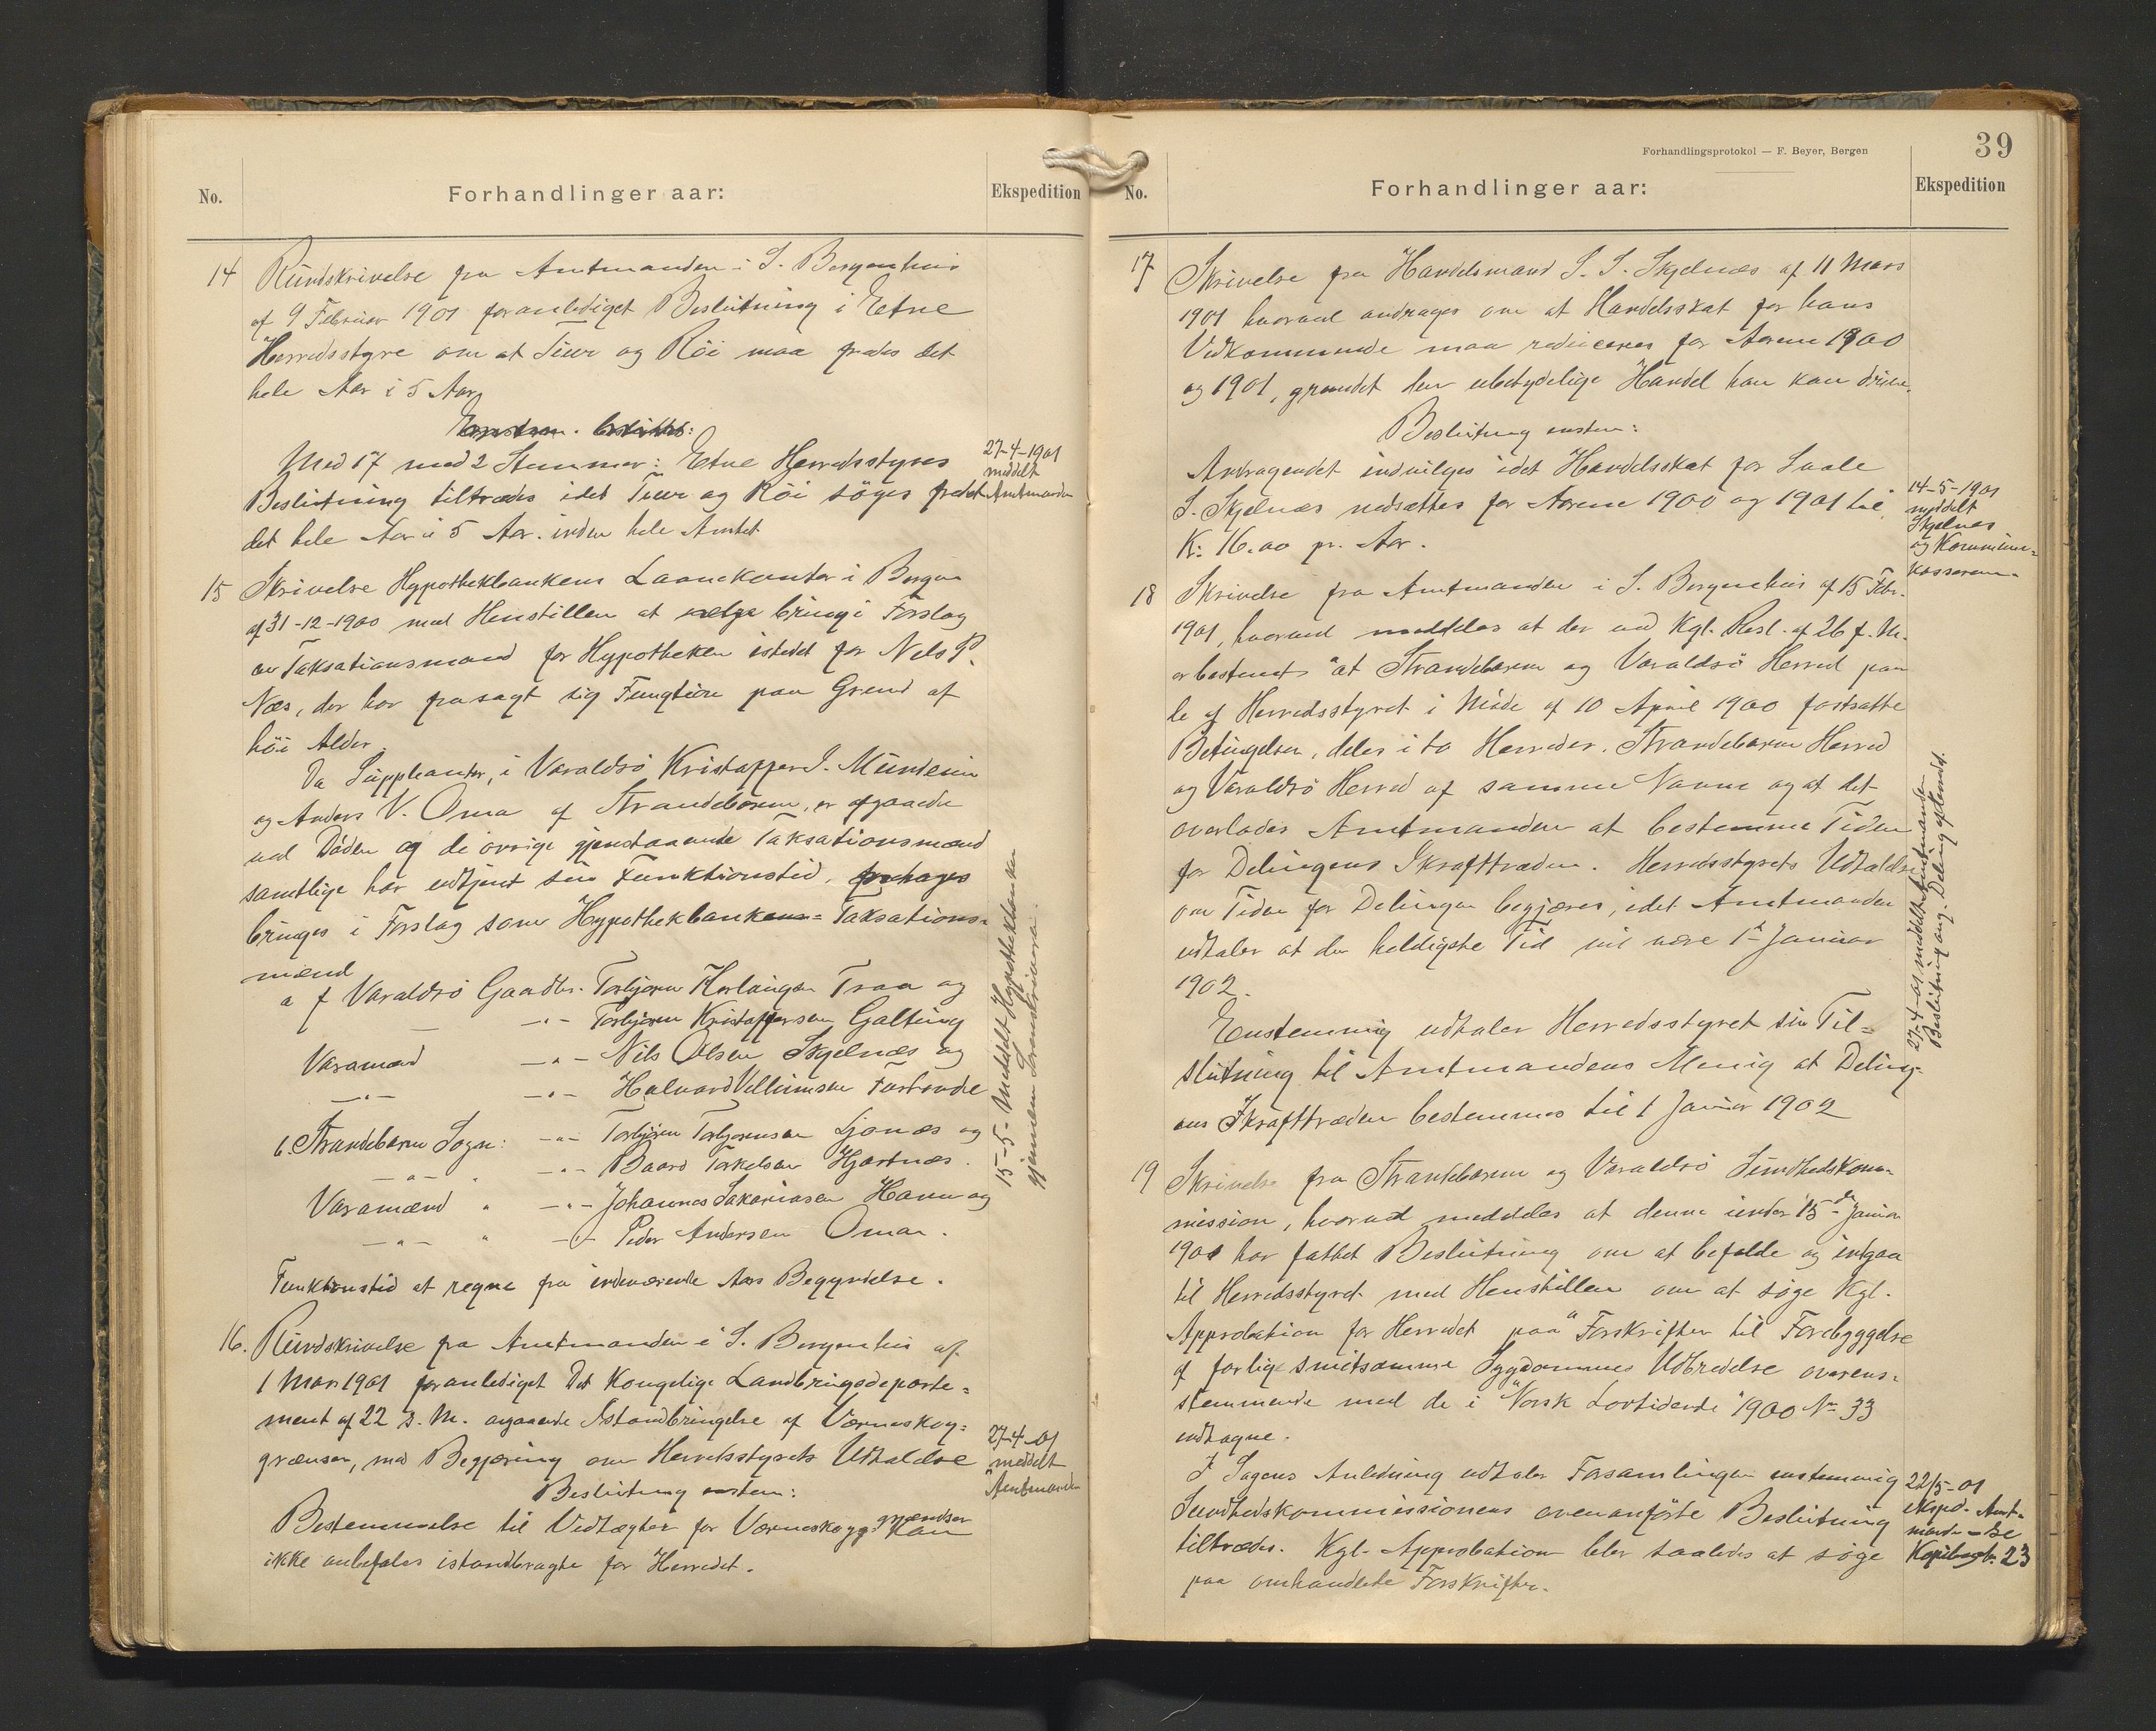 No.
Forhandlinger aar:
Ekspedition
14 Rundskrivelse fra Amtmanden i S. Bergenhus
af 9 Februar 1901 foranlediget Beslutning i Etne
Herredsstyre om at Tiur og Röi maa fredes det
hele Aar i 5 Aar
Med 17 mod 2 Stemmer: Etne Herredsstyres
Beslutning tiltrædes idet Tiur og Röi söges fredet
det hele Aar i 5 Aar. inden hele Amtet
27-4-1901
meddelt
Amtmanden
15 Skrivelse Hypothekbankens Laanekontor i Bergen
af 31-12-1900 med Henstillen at vælge bringe i Forslag
en Taksationsmand for Hypotheken istedet for Nels P.
Næs, der har frasagt sig Fungtion paa Grund af
höi Alder.
Da Suppleanter, i Varaldsö Kristoffer J. Mundheim
og Anders V. Oma af Strandebarm, er afgaaede
ved Döden og de övrige gjenstaaende Taksationsmænd
samtlige har udtjent sin Funktionstid,
bringes i Forslag som Hypothekbankens Taksations=
mænd
a f Varaldsö Gaardbr. Torbjörn Herlaugsen Traa og
— -"- Torbjörn Kristoffersen Galtung
Varamænd -"- Nils Olsen Skjelnæs og
-"- -"- Halvard Villumsen
b. Strandebarm Sogn: -"- Torbjörn Torbjörnsen Ljonæs og
-"- -"- Baard Torkelsen Hjartnæs.
Varamænd " -"- Johannes Sakariasen Havn og
-"- " -"- Peder Andersen Oma.
Funktionstid at regne fra indeværende Aars Begyndelse.
15-5- meddelt Hypothekbanken
gjennem Sorenskriveren.
16. Rundskrivelse fra Amtmanden i S. Bergenhus af
1 Mars 1901 foranlediget Det Kongelige Landbrugsdeparte=
ment af 22 s. M. angaaende Istandbringelse af Værneskog=
grænser, med Begjæring om Herredsstyrets Udtalelse
Beslutning enstem:
Bestemmelse til Vedtægter for Værneskoggrændser kan
ikke anbefales istandbragte for Herredet.
27-4-01
meddelt
Amtmanden
Forhandlingsprotokol — F. Beyer, Bergen
39
No.
Forhandlinger aar:
Ekspedition
17 Skrivelse fra Handelsmand S. S. Skjelnæs af 11 Mars
1901 hvorved andrages om at Handelsskat for hans
Vedkommende maa reduceres for Aarene 1900
og 1901, grundet den ubetydelige Handel han kan drive.
Beslutning enstem:
Andragendet indvilges idet Handelsskat for Sjaale
S. Skjelnæs nedsættes for Aarene 1900 og 1901 til
Kr. 16.00 pr. Aar.
14-5-1901
meddelt
Skjelnæs
og Kommune=
kassereren
18 Skrivelse fra Amtmanden i S. Bergenhus af 15 Febr.
1901, hvorved meddeles at der ved Kgl. Resl. af 26 f. M.
er bestemt "at Strandebarm og Varaldsö Herred paa
de af Herredsstyret i Möde af 10 April 1900 fastsatte
Betingelser, deles i to Herreder, Strandebarm Herred
og Varaldsö Herred af samme Navne og at det
overlades Amtmanden at bestemme Tiden
for Delingens Ikrafttræden. Herredsstyrets Udtalelse
om Tiden for Delingen begjæres, idet Amtmanden
udtaler at den heldigste Tid vil være 1ste Januar
1902.
Enstemmig udtaler Herredsstyret sin Til=
slutning til Amtmandens Menig at Deling=
ens Ikrafttræden bestemmes til 1 Januar 1902
27-4-01 meddelt Amtmanden
Beslutning ang. Deling
19 Skrivelse fra Strandebarm og Varaldsö Sundhedskom=
mission, hvorved meddeles at denne under 15de Januar
1901 har fattet Beslutning om at befalde og indgaa
til Herredsstyret med Henstillen om at söge Kgl.
Approbation for Herredet paa "Forskrifter til Forebyggelse
af farlige smitsomme Sygdommes Udbredelse overens=
stemmende med de i "Norsk Lovtidende" 1900 No 33
indtagne.
I Sagens Anledning udtaler Forsamlingen enstemmig
Sundhedskommissionens ovenanförte Beslutning
tiltrædes. Kgl. Approbation blev saaledes at söge
paa omhandlede Forskrifter.
22/5-01
eksped. Amt=
manden - Se
Kopibog S. 23